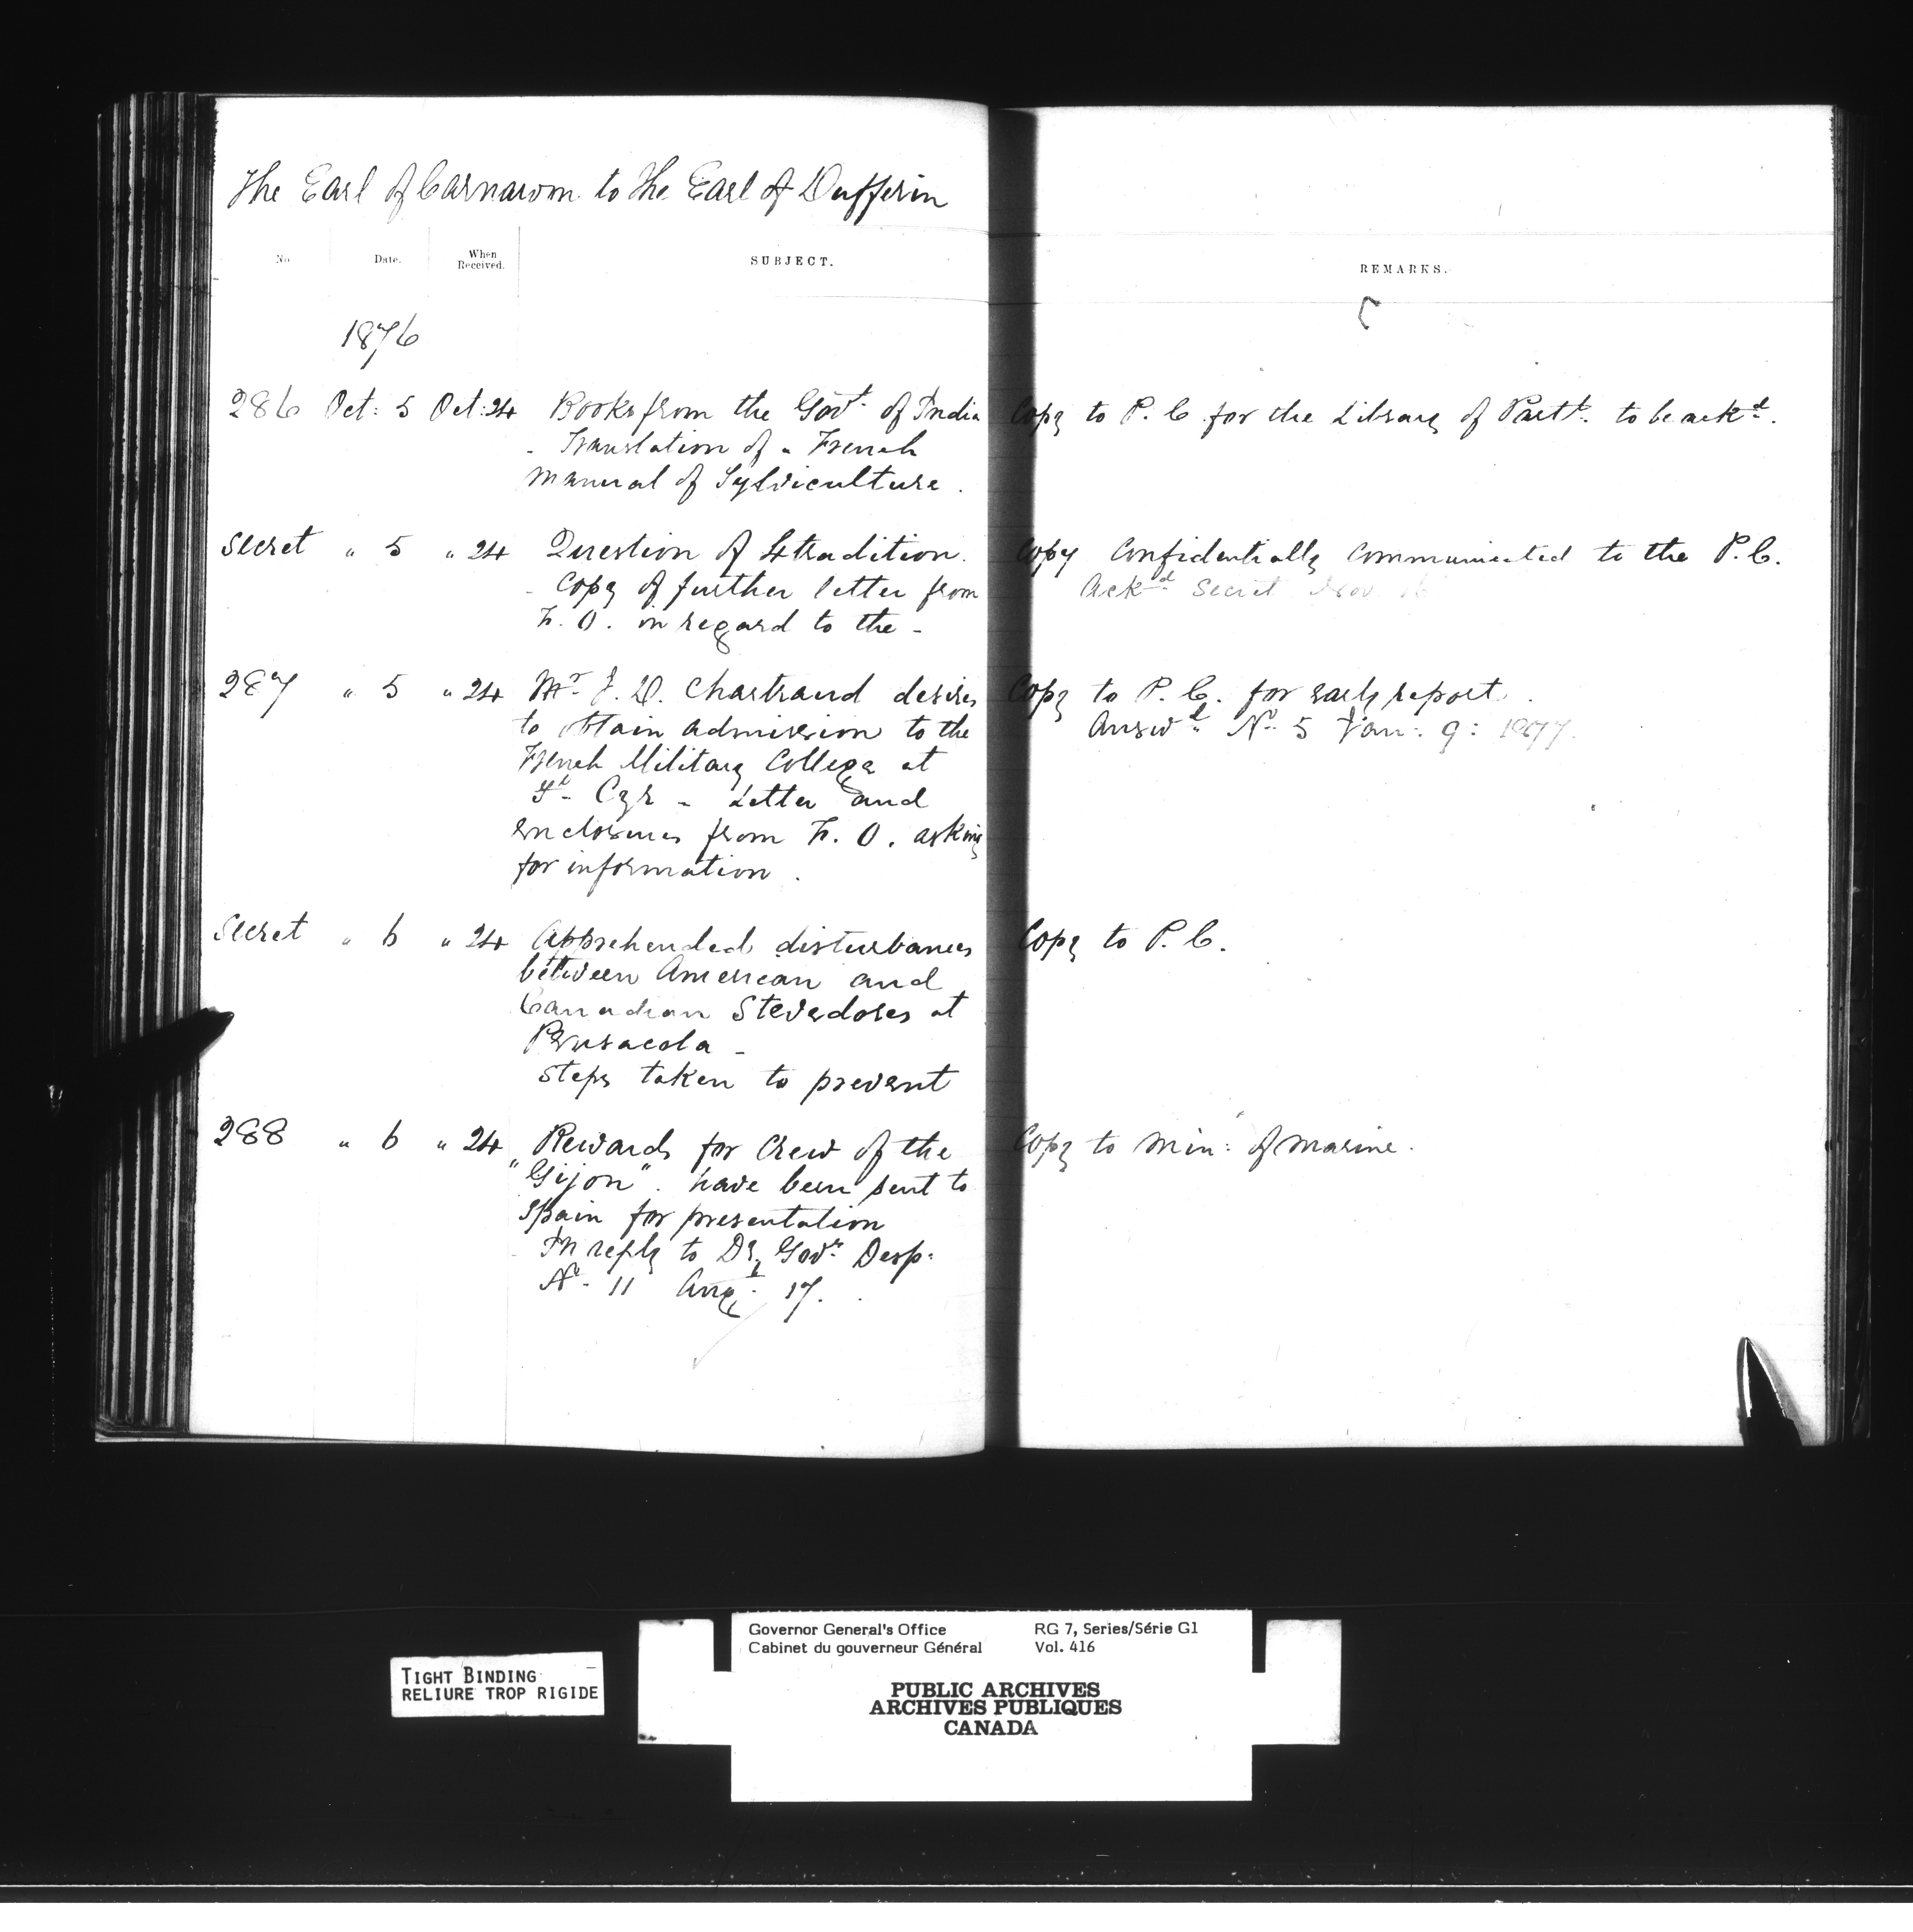 The Earl of Carnarvon to the Earl of Dufferin
No Date. When Received. SUBJECT. REMARKS.
1876
286 Oct: 5 Oct: 24 Books from the Govt. of India Copy to P. C. for the Library of Parlt. to be ackd.
- Translation of a French
Manual of Sylviculture.
Secret " 5 " 24 Question of Extradition. Copy Confidentially Communicated to the P. C.
- Copy of further letter from Ackd Secret Nov.
F. O. in regard to the -
287 " 5 " 24 Mr. J. D. Chartrand desires Copy to P. C. for early report.
to obtain admission to the Answd. No. 5 Jan: 9: 1877.
French Military College at
St. Cyr - Letter and
enclosures from F. O. asking
for information.
Secret " 6 " 24 Apprehended disturbances Copy to P. C.
between American and
Canadian Stevedores at
Pensacola -
Steps taken to prevent
288 " 6 " 24 Rewards for Crew of the Copy to Min: of Marine.
"Gijon". have been sent to
Spain for presentation
- In reply to Dy. Govrs. Desp:
No. 11 Augt. 17.
TIGHT BINDING
RELIURE TROP RIGIDE
Governor General's Office RG 7, Series/Série G1
Cabinet du gouverneur Général Vol. 416
PUBLIC ARCHIVES
ARCHIVES PUBLIQUES
CANADA